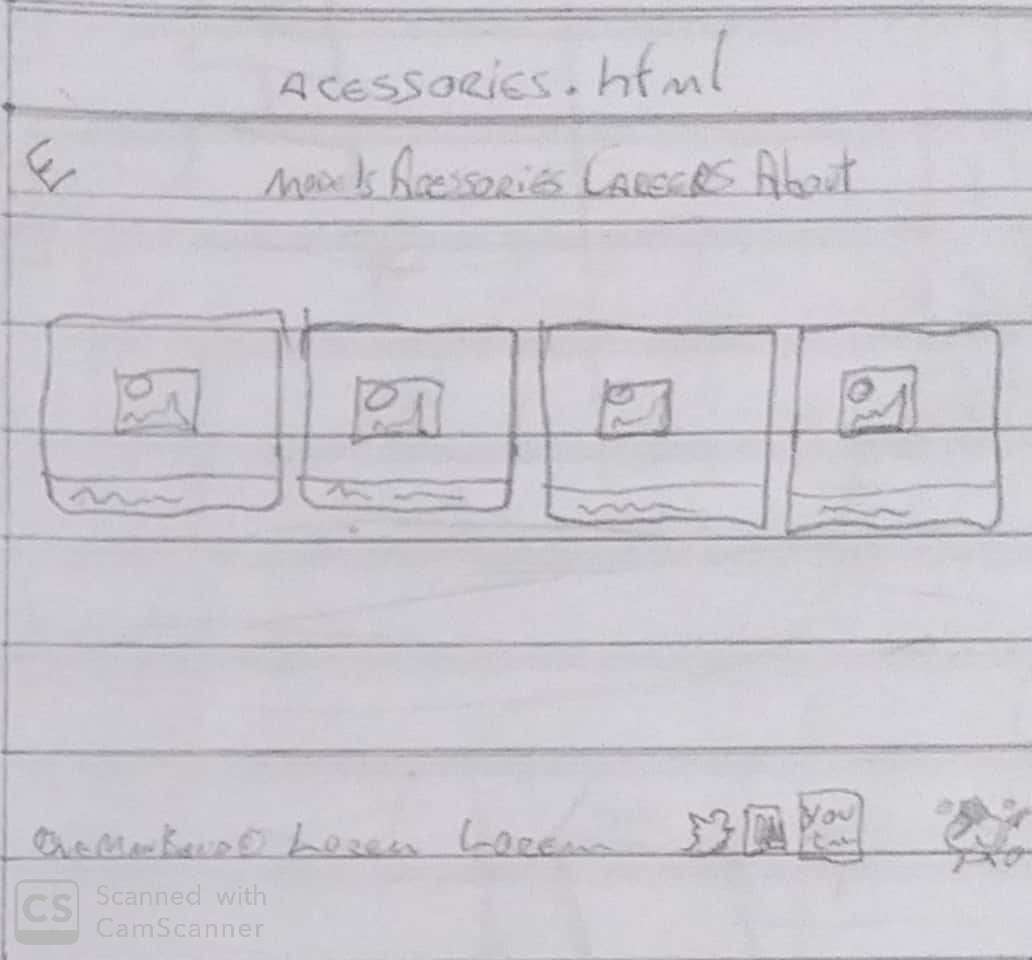 ACESSORiES.html
E Models Acessories CAREERS About
Lorem Lorem
You
CS Scanned with
CamScanner